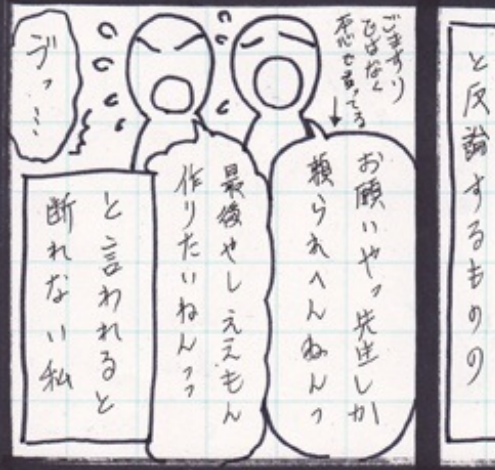 と反論するものの
ごますり
ではなく
本心で言ってる
お願いやっ先生しか
頼られへんねんっ
最後やしええもん
作りたいねんっっ
と言われると
断れない私